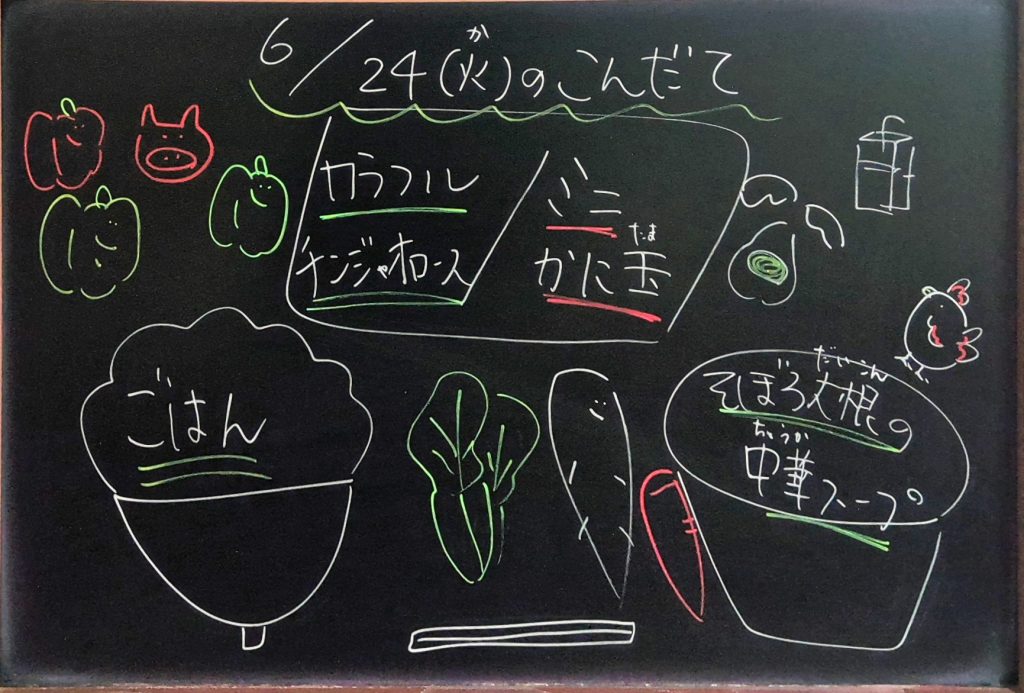 6/24(火)のこんだて
か
カラフル
チンジャオロース
ミニ
かに玉
たま
ごはん
そぼろ大根の
だいこん
中華スープ
ちゅうか